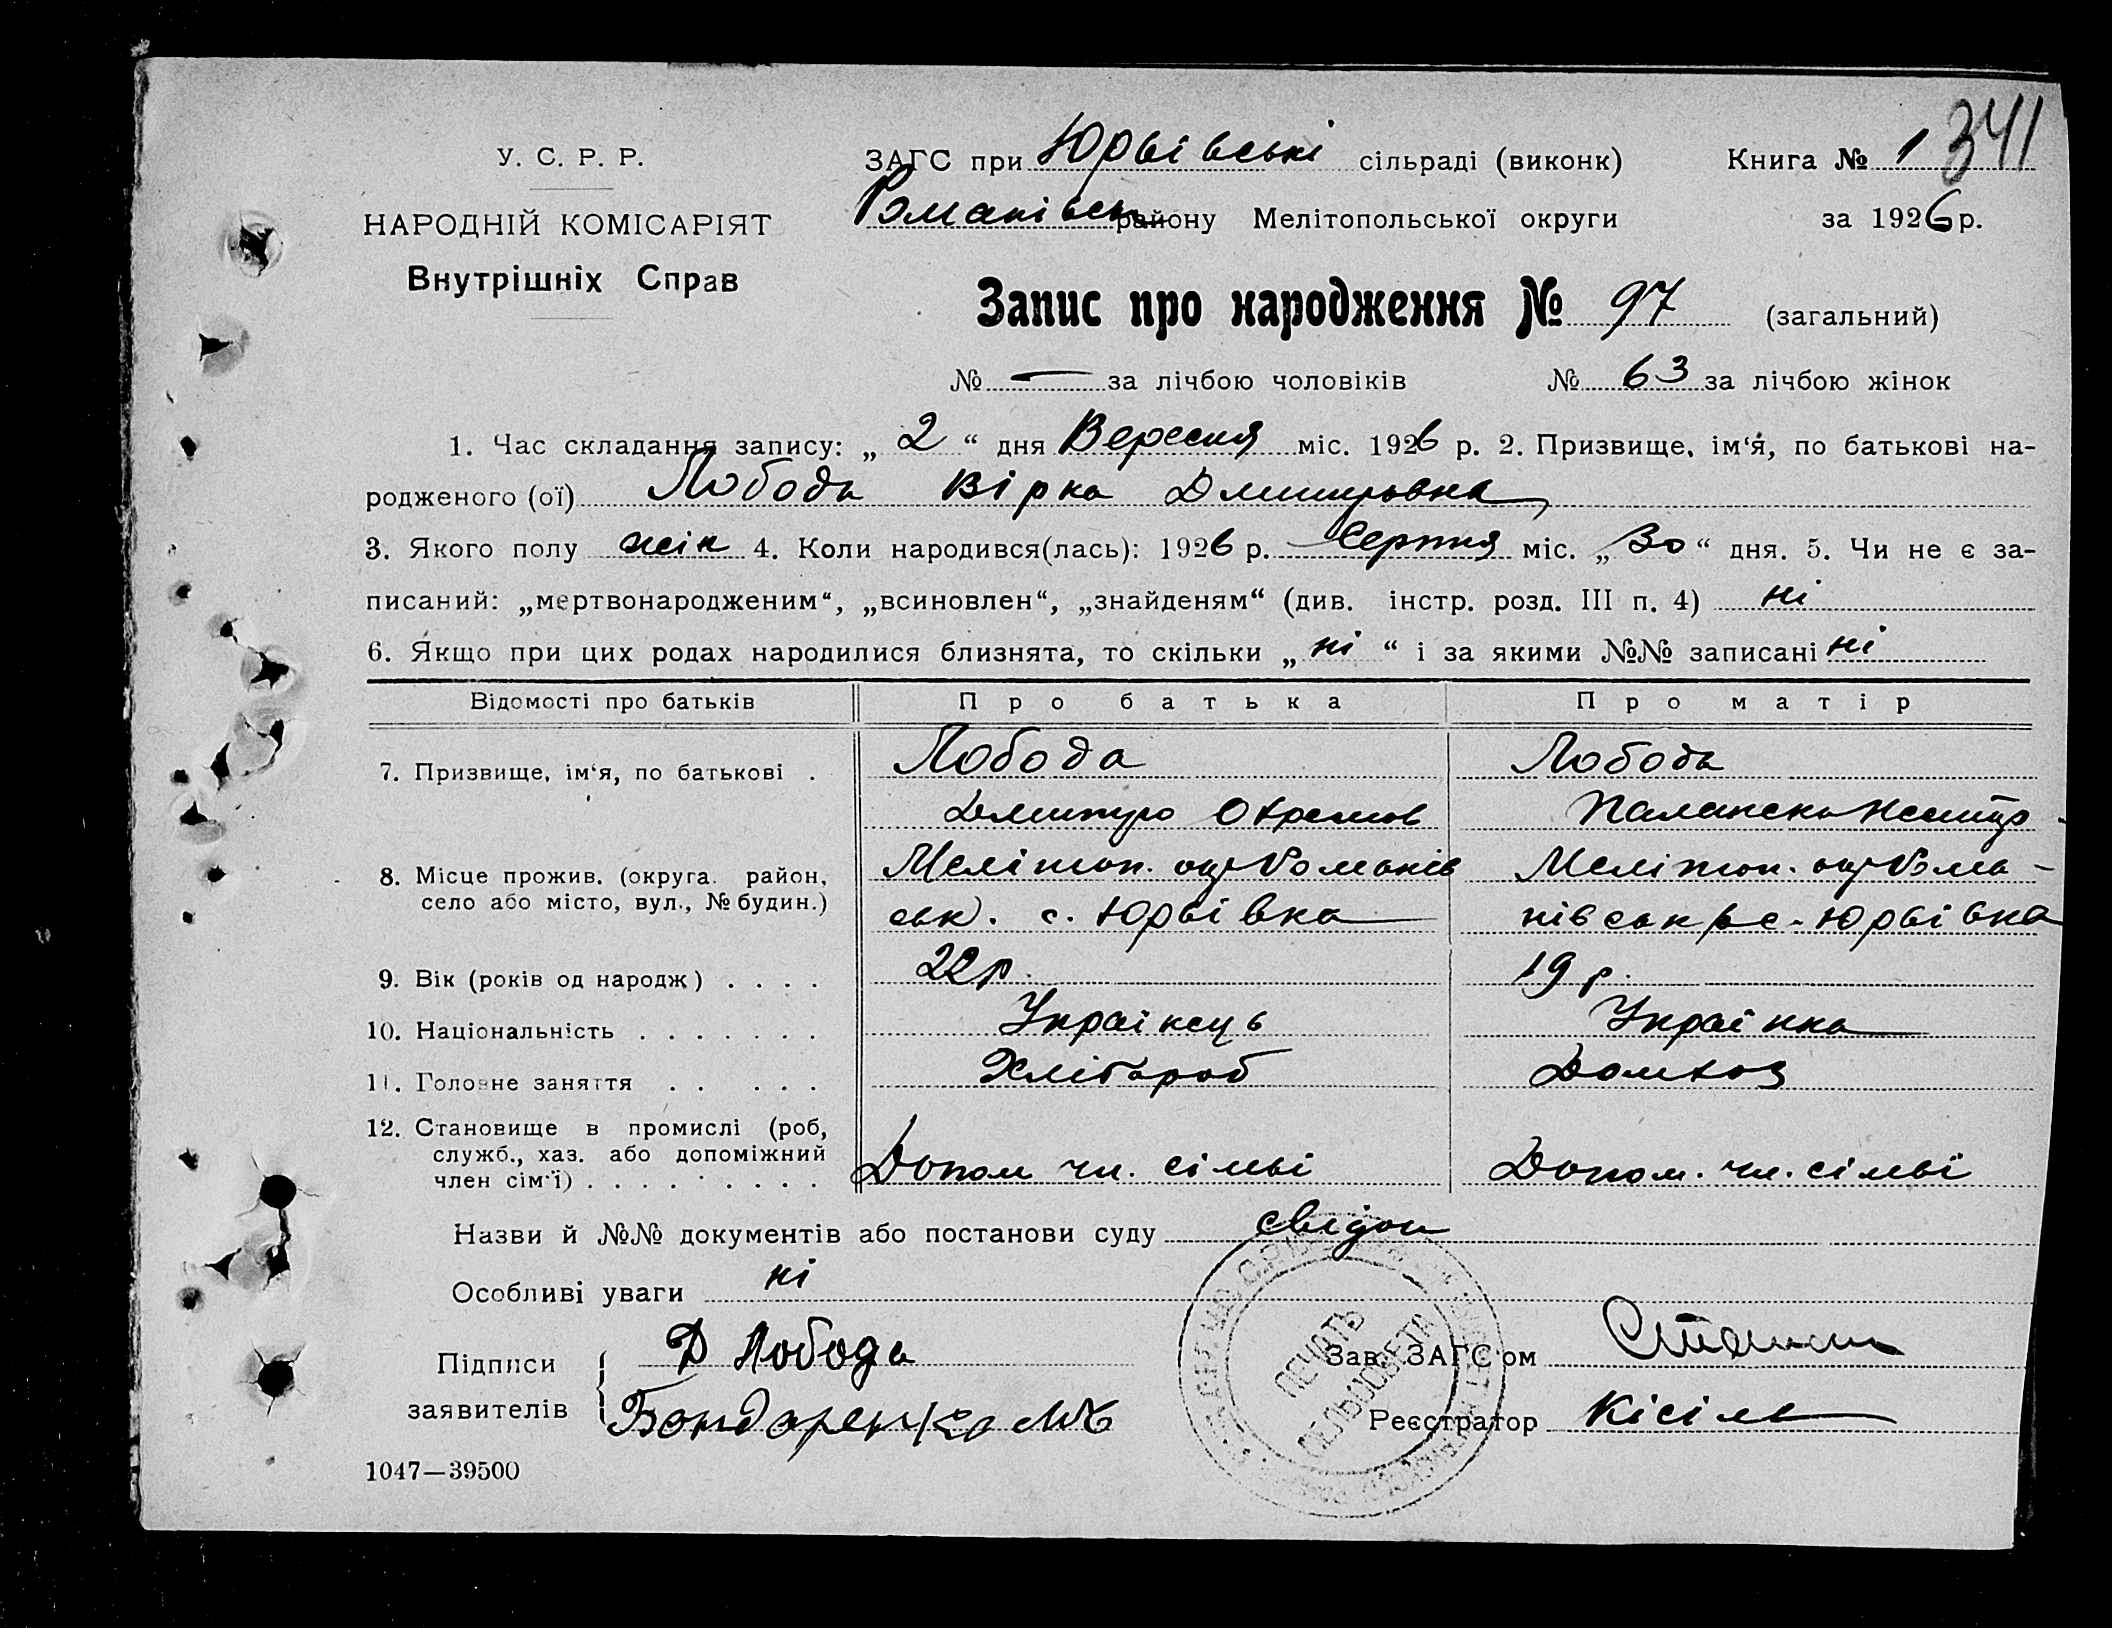 341
У. С. Р. Р.
ЗАГС при Юрьівські сільраді (виконк) Книга № 1
НАРОДНІЙ КОМІСАРІЯТ
Романівськ району Мелітопольської округи за 1926 р.
Внутрішніх Справ
Запис про народження № 97 (загальний)
№ — за лічбою чоловіків № 63 за лічбою жінок
1. Час складання запису: „ 2 “ дня Вересня міс. 1926 р. 2. Призвище, ім‘я, по батькові на-
родженого (ої) Лобода Вірка Дмитровна
3. Якого полу жін 4. Коли народився(лась): 1926 р. Серпня міс. „ 30 “ дня. 5. Чи не є за-
писаний: „мертвонародженим“, „всиновлен“, „знайденям“ (див. інстр. розд. III п. 4) ні
6. Якщо при цих родах народилися близнята, то скільки „ ні “ і за якими №№ записані ні
Відомості про батьків Про батька Про матір
7. Призвище, ім‘я, по батькові . Лобода Лобода
Дмитро Охремов
8. Місце прожив. (округа. район, Мелітоп. окр Романів Мелітоп. окр Рома-
село або місто, вул., № будин.) ськ. с. Юрьівка нівськ р с. Юрьівка
9. Вік (років од народж) . . . . 22 р. 19 р.
10. Національність . . . . . . . Українець Українка
11. Головне заняття . . . . . Хлібороб Домхоз
12. Становище в промислі (роб,
служб., хаз. або допоміжний
член сім‘ї) . . . . . . . . . Допом чл. сімьі Допом. чл. сімьї
Назви й №№ документів або постанови суду свідоц
Особливі уваги ні
Підписи Д Лобода Зав. ЗАГС‘ом
заявителів Бондаренко Реєстратор Кісіль
ПЕЧАТЬ
СЕЛЬСОВЕТА
1047—39500